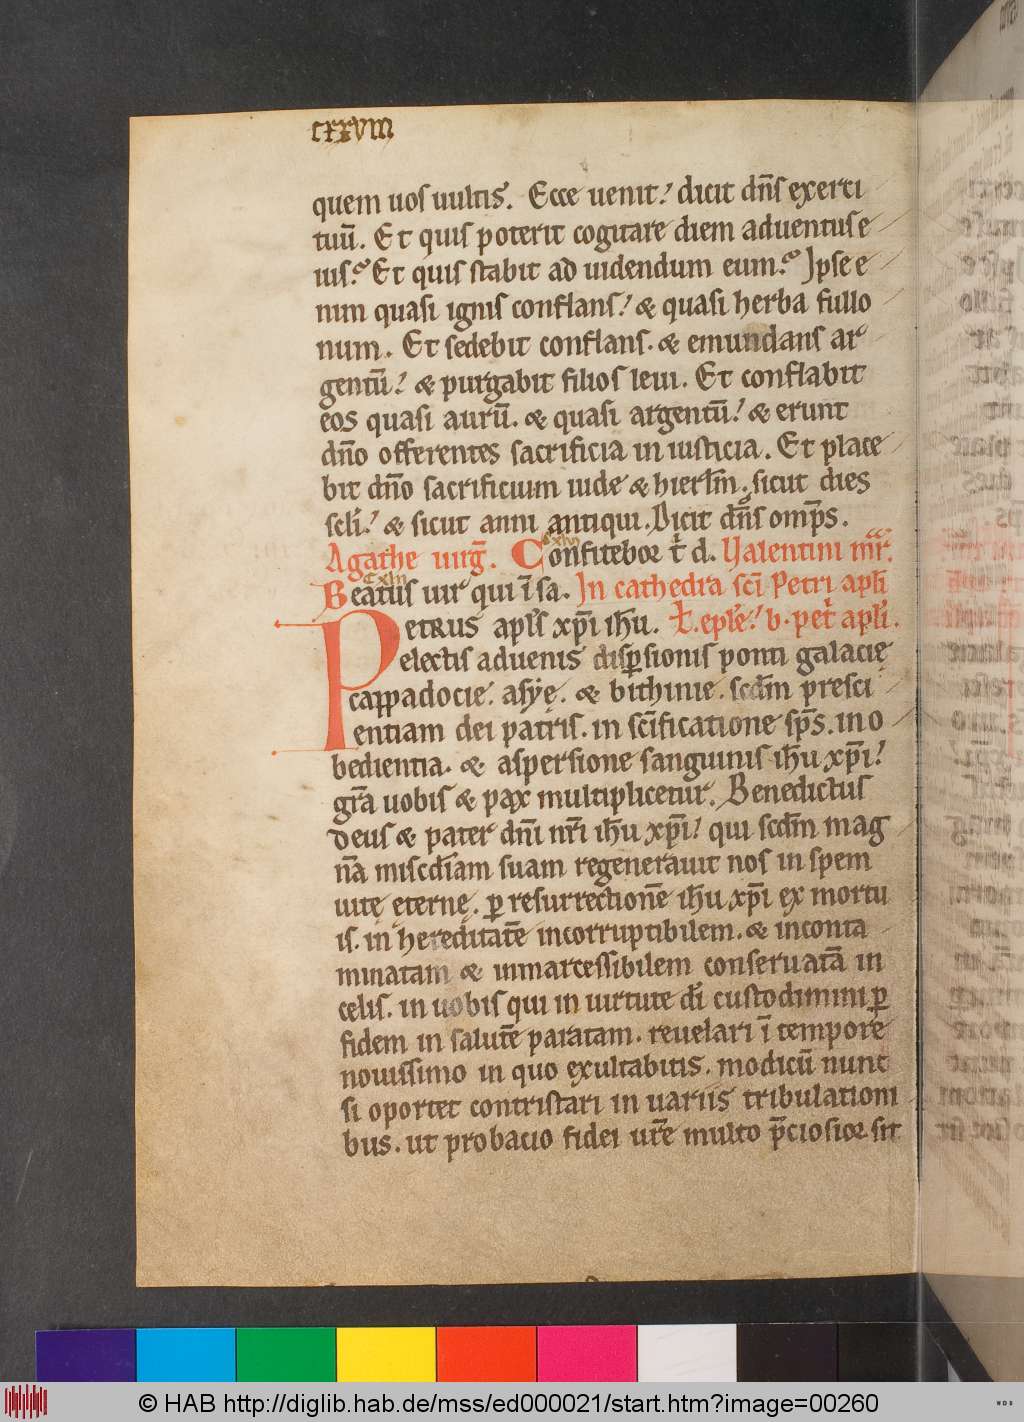 cxxviii
quem uos uultis. Ecce uenit! dicit dn̄s exerci
tuū. Et quis poterit cogitare diem aduentus e
ius? Et quis stabit ad uidendum eum? Ipse e
nim quasi ignis conflans! & quasi herba fullo
num. Et sedebit conflans. & emundans ar
gentū! & purgabit filios leui. Et conflabit
eos quasi aurū. & quasi argentū! & erunt
dn̄o offerentes sacrificia in iusticia. Et place
bit dn̄o sacrificium iude & hierlm̄. sicut dies
scl̄i! & sicut anni antiqui. Dicit dn̄s omp̄s.
Agathe uirḡ. Confitebor t̄ d. Valentini mr̄.
Beatus uir qui ī sa. In cathedra sc̄i Petri apl̄i
Petrus apl̄s xp̄i ih̄u. t̄. ep̄le! b. pet̄ apl̄i.
electis aduenis disp̄sionis ponti galacię
cappadocie. asyę. & bithinie. scd̄m presci
entiam dei patris. in sc̄ificatione sp̄s. in o
bedientia. & aspersione sanguinis ih̄u xp̄i!
gr̄a uobis & pax multiplicetur. Benedictus
deus & pater dn̄i nr̄i ih̄u xp̄i! qui scd̄m mag
nā misc̄diam suam regenerauit nos in spem
uitę ęternę. p̄ resurrectionē ih̄u xp̄i ex mortu
is. in hereditatē incorruptibilem. & inconta
minatam & inmarcessibilem conseruatā in
celis. in uobis qui in uirtute dī custodimini p̄
fidem in salutē paratam. reuelari ī tempore
nouissimo in quo exultabitis. modicū nunc
si oportet contristari in uariis tribulationi
bus. ut probacio fidei ur̄e multo p̄ciosior sit
© HAB http://diglib.hab.de/mss/ed000021/start.htm?image=00260